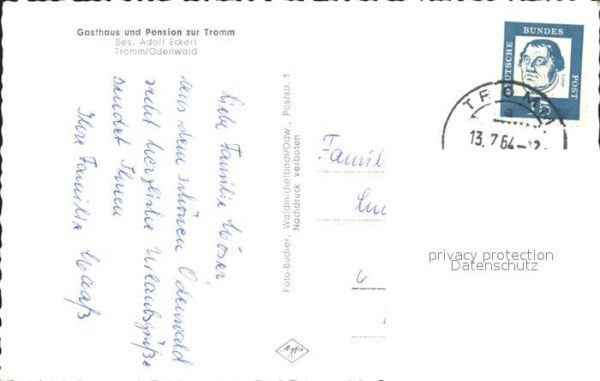 Gasthaus und Pension zur Tromm
Bes. Adolf Eckert
Tromm/Odenwald
Liebe Familie Möser,
aus dem schönen Odenwald
recht herzliche Urlaubsgrüße
sendet Ihnen
Ihre Familie Haaß
Foto-Bucher, Waldmichelbach/Odw., Poststr. 1
Nachdruck verboten
Agfa
DEUTSCHE BUNDES POST
15
TROMM
a
13.7.64-12
Famil
privacy protection
Datenschutz